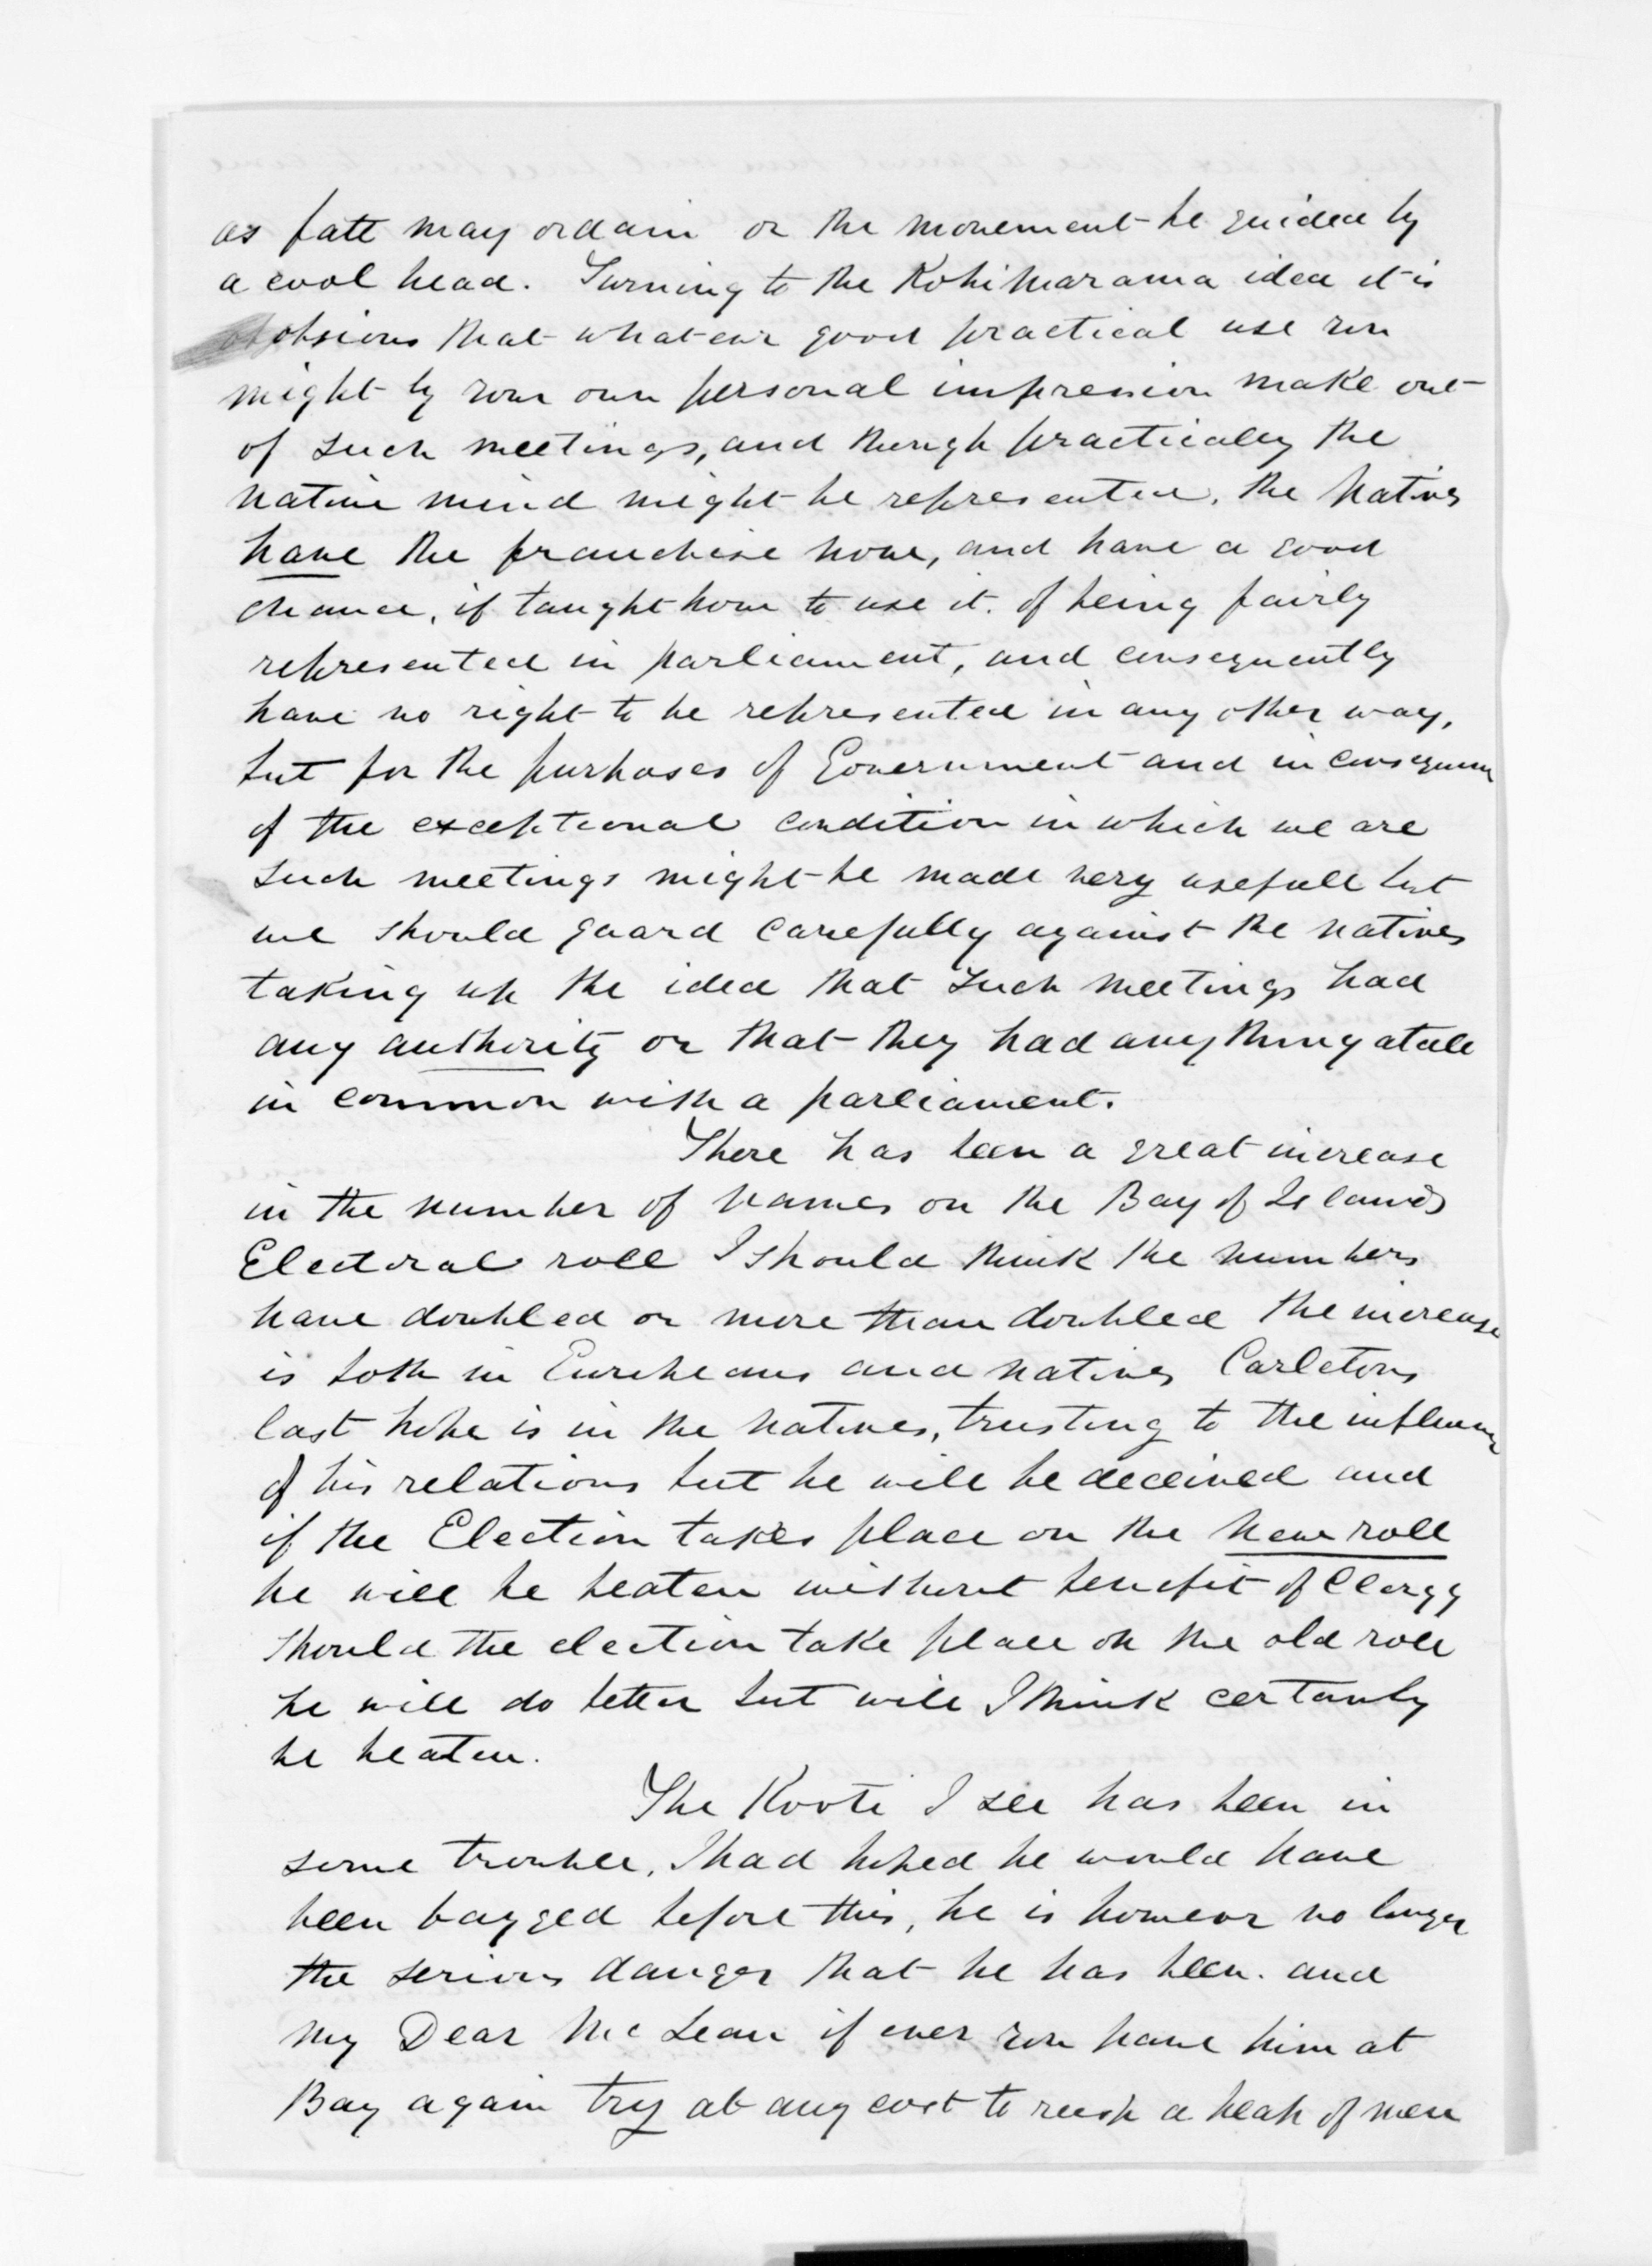 as fate may ordain or the movement be guided by
a cool head. Turning to the Kohimarama idea it is
obvious that whatever good practical use you
might by your own personal impression make out
of such meetings, and though practically the
native mind might be represented, the natives
have the franchise now, and have a good
chance, if taught how to use it. of being fairly
represented in parliament, and consequently
have no right to be represented in any other way,
but for the purposes of Government and in consequence
of the exceptional condition in which we are
such meetings might be made very usefull but
we should guard carefully against the natives
taking up the idea that such meetings had
any authority or that they had any thing atall
in common with a parliament.
There has been a great increase
in the number of names on the Bay of Islands
Electoral roll I should think the numbers
have doubled or more than doubled the increase
is both in Europeans and natives Carletons
last hope is in the natives, trusting to the influence
of his relations but he will be deceived and
if the Election takes place on the new roll
he will be beaten without benefit of Clergy
should the election take place on the old roll
he will do better but will I think certanly
be beaten.
The Kooti I see has been in
some trouble, I had hoped he would have
been bagged before this, he is however no longer
the serious danger that he has been. and
my Dear McLean if ever you have him at
Bay again try at any cost to rush a heap of men